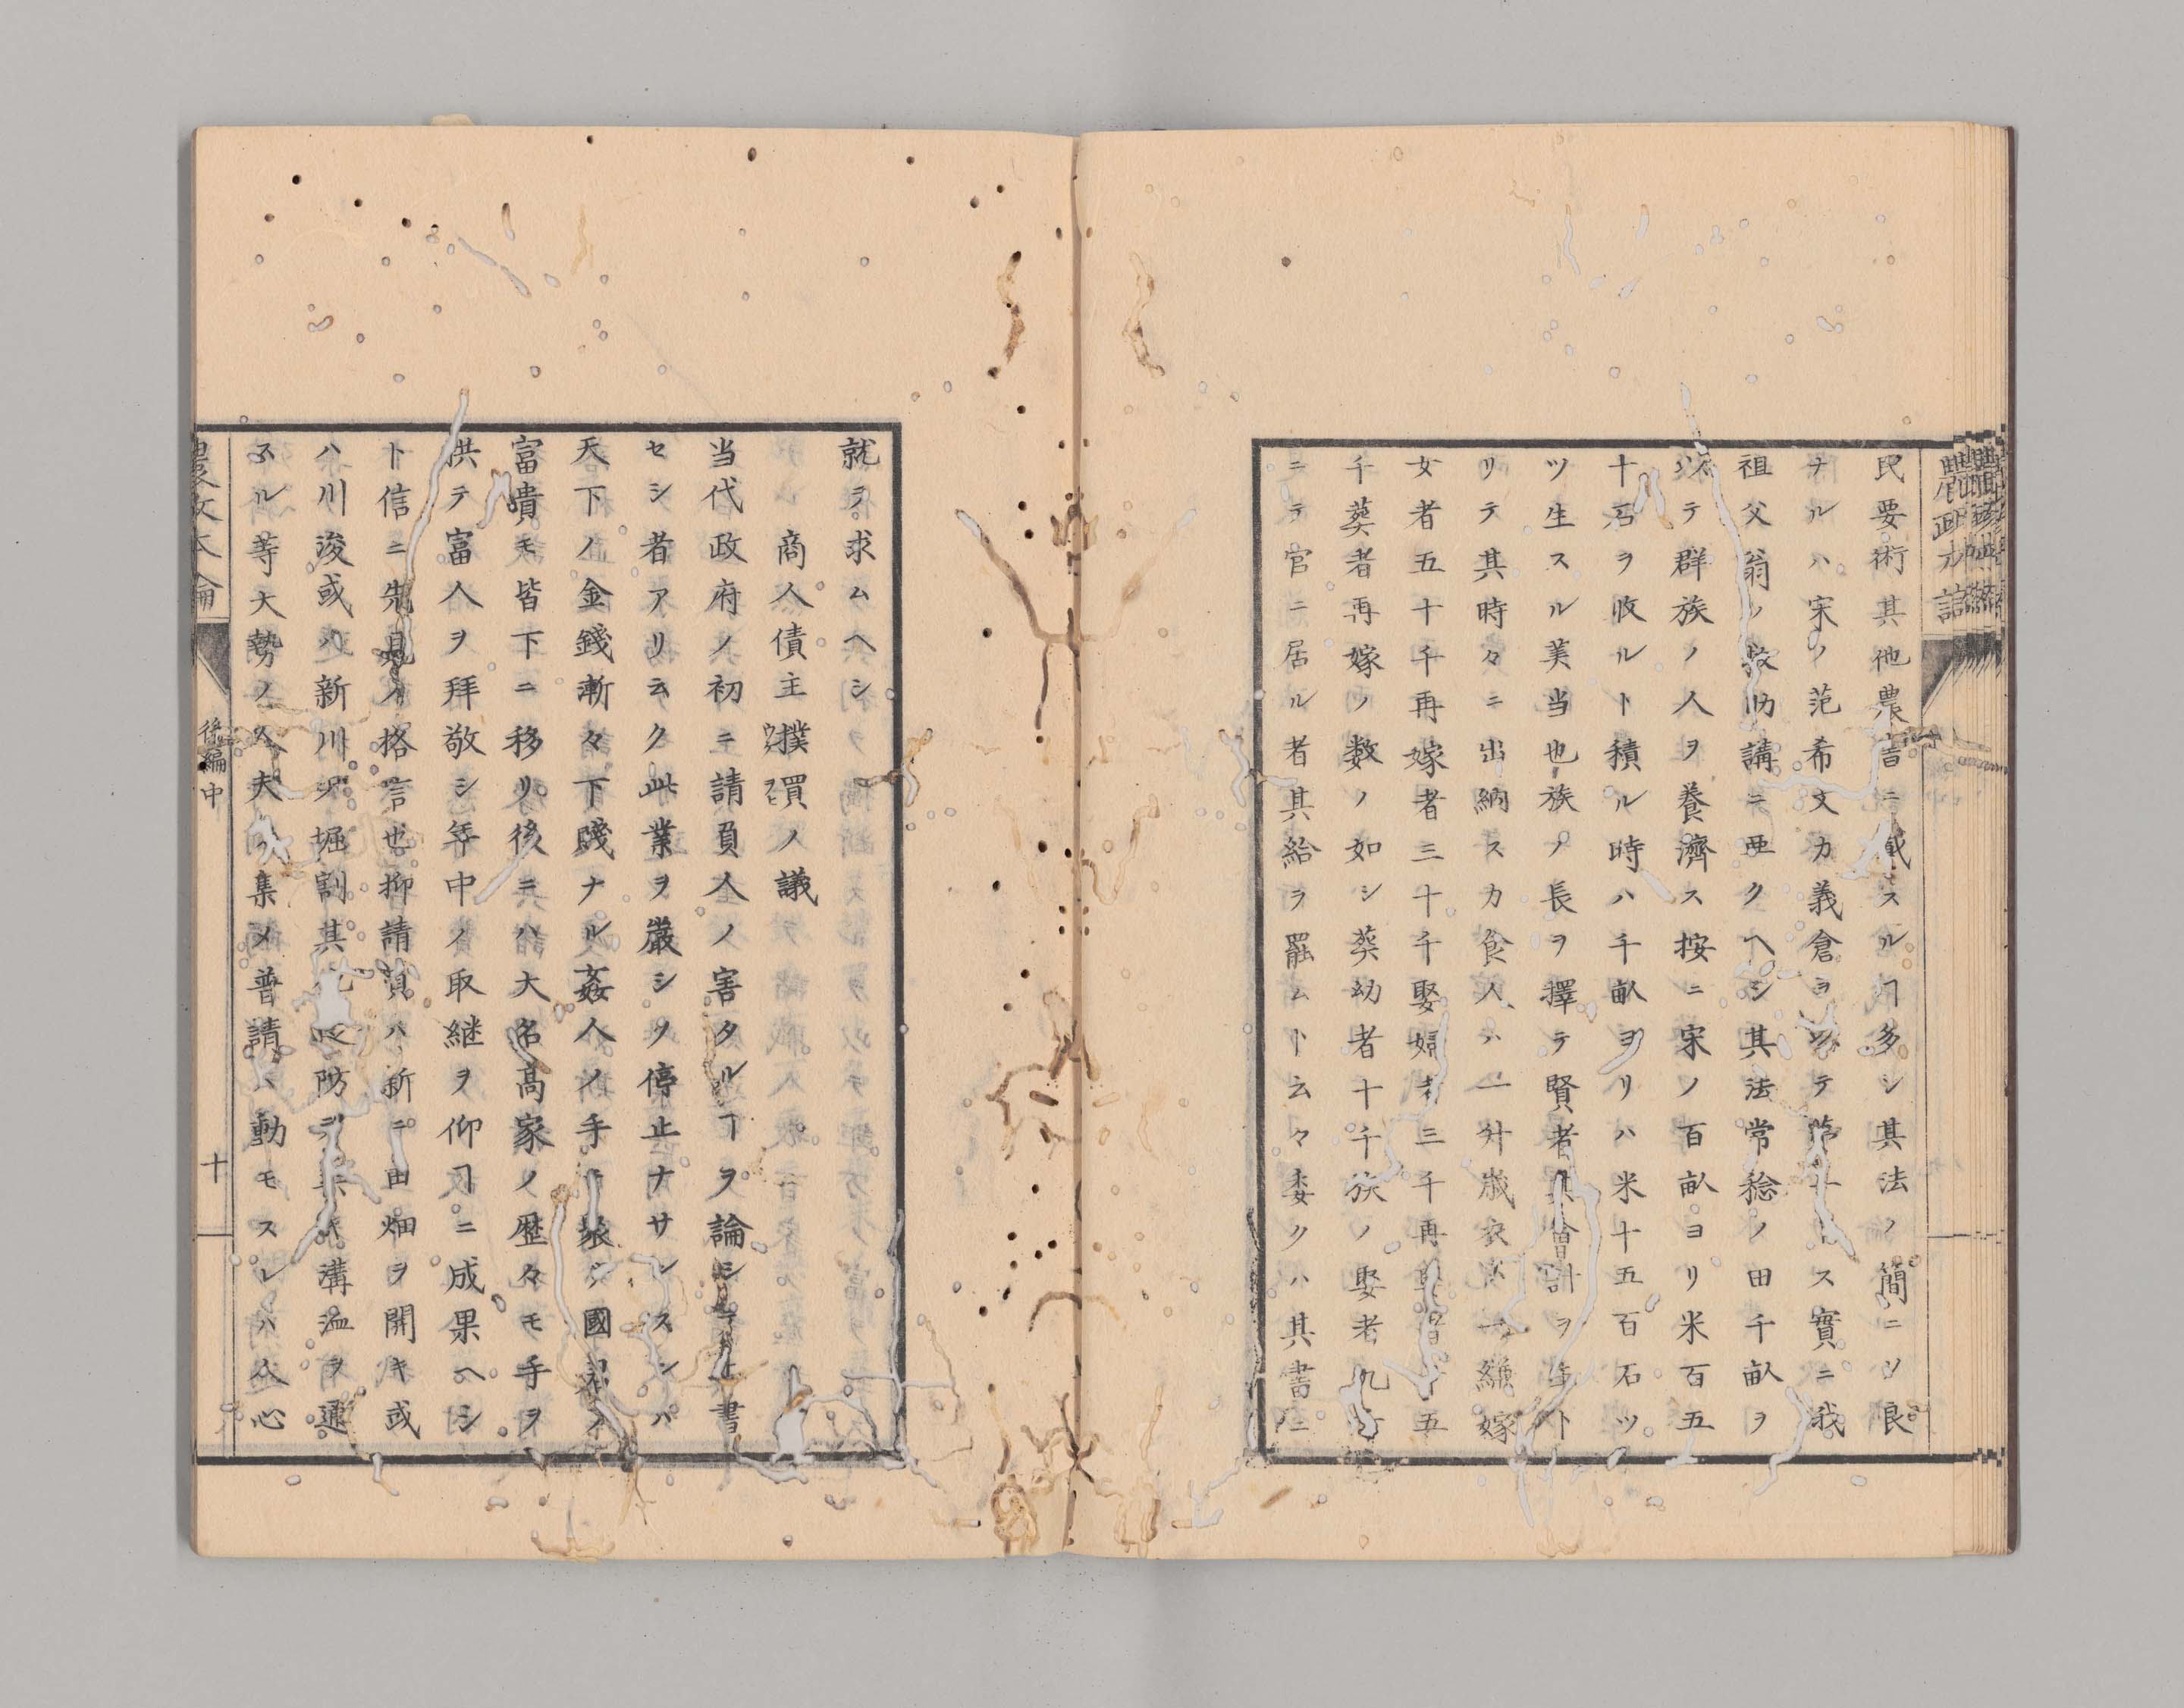 民要術其他農書ニ載スルヿ多シ其法ノ簡ニソ良
ナルハ宋ノ范希文カ義倉ヲ以テ第一トス實ニ我
祖父翁ノ救助講ニ亜クヘシ其法常稔ノ田千畝ヲ
以テ群族ノ人ヲ養濟ス按ニ宋ノ百畝ヨリ米百五
十石ヲ收ルト積ル時ハ千畝ヨリハ米千五百石ツ
ツ生スル美当也族ノ長ヲ擇テ賢者其會計ヲ
リテ其時々ニ出納ス 食人ハ一升歳衣 一縑嫁
女者五十千再嫁者三十千娶婦者三千再娶 十五
千葬者再嫁ノ数ノ如シ葬幼者十千族ノ娶者九
ニテ官ニ居ル者其給ヲ罷ムト云々委クハ其書ニ
就ラ求ムヘシ
商人債主撲買ノ議
当代政府ノ初ニ請負人ノ害タルヿヲ論シ 上書
セシ者アリ云ク此業ヲ厳シク停止ナサシスンハ
天下ノ金錢漸々下賤ナル姦人ノ手 國
富貴モ皆下ニ移リ後ニハ大名高家ノ歴々モ手ヲ
拱テ富人ヲ拜敬シ年中ノ取継ヲ仰ヿニ成果ヘシ
ト信ニ先見ノ格言也抑請負ハ新ニ田畑ヲ開キ或
ハ川浚或ハ新川 堀割其 防 溝洫ヲ通
スル等大勢ノ人夫ヲ集メ普請ハ動モスレハ人心
農政本論
後編中
十